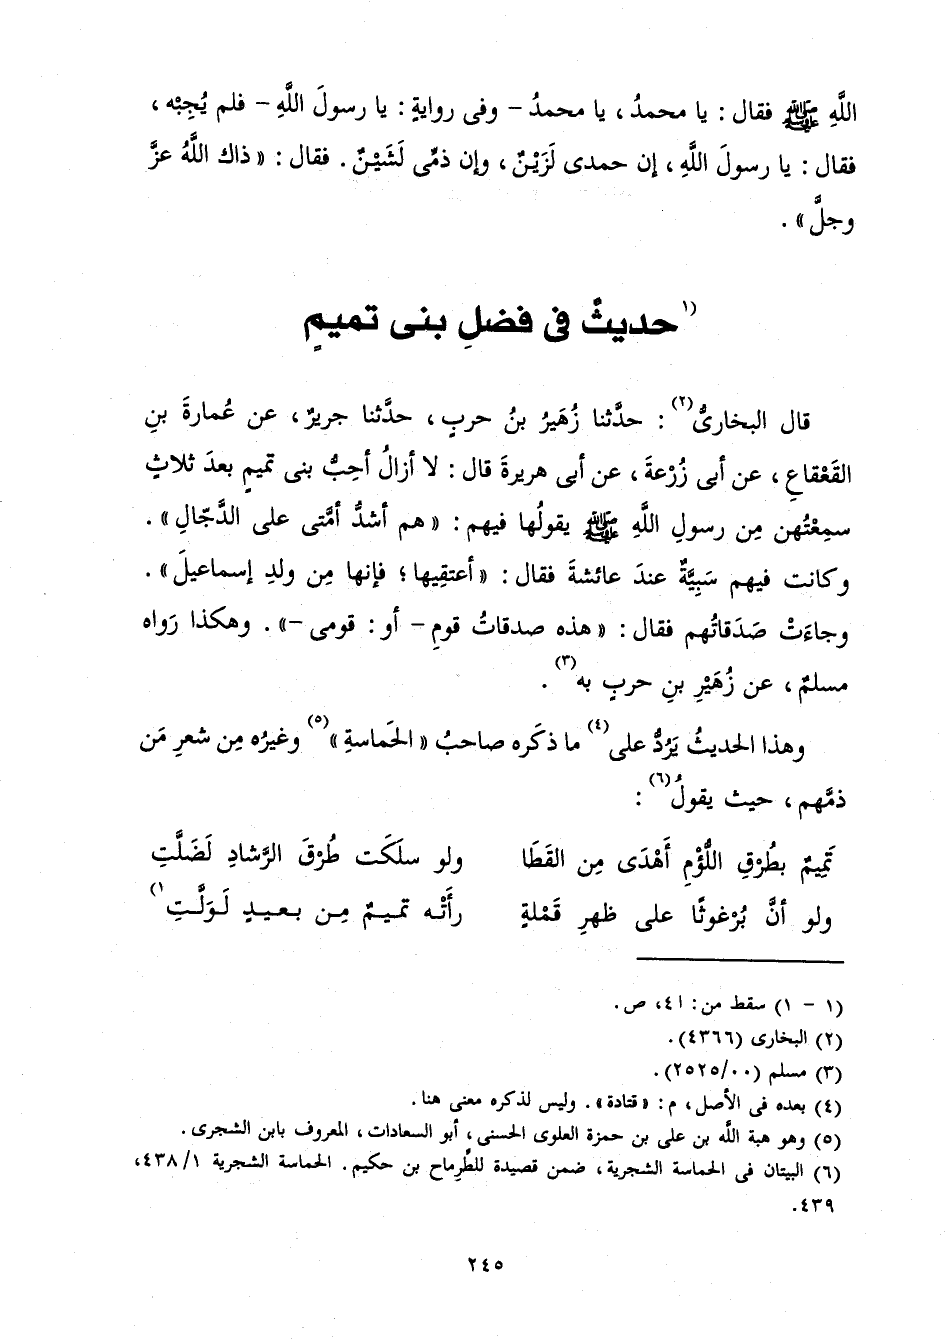 اللَّهِ ﷺ فقال : يا محمدُ ، يا محمدُ - وفى روايةٍ : يا رسولَ اللَّهِ - فلم يُجِبْه ،
فقال : يا رسولَ اللَّهِ ، إن حمدى لَزَيْنٌ ، وإن ذمِّى لَشَيْنٌ . فقال : « ذاك اللَّهُ عزَّ
وجلَّ » .
(١حديثٌ فى فضلِ بنى تميمٍ
قال البخارىُّ(٢) : حدَّثنا زُهَيرُ بنُ حربٍ ، حدَّثنا جريرٌ ، عن عُمارةَ بنِ
القَعْقاعِ ، عن أبى زُرْعةَ ، عن أبى هريرةَ قال : لا أزالُ أحِبُّ بنى تميمٍ بعدَ ثلاثٍ
سمِعْتُهن مِن رسولِ اللَّهِ ﷺ يقولُها فيهم : « هم أشدُّ أمَّتى على الدَّجّالِ » .
وكانت فيهم سَبِيَّةٌ عندَ عائشةَ فقال : « أعتقِيها ؛ فإنها مِن ولدِ إسماعيلَ » .
وجاءَتْ صَدَقاتُهم فقال : « هذه صدقاتُ قومٍ - أو : قومى -» . وهكذا رَواه
مسلمٌ ، عن زُهَيْرِ بنِ حربٍ به(٣) .
وهذا الحديثُ يَرُدُّ على(٤) ما ذكَره صاحبُ « الحَماسةِ »(٥) وغيرُه مِن شعرِ مَن
ذمَّهم ، حيث يقولُ(٦) :
تَمِيمٌ بطُرْقِ اللُّؤْمِ أَهْدَى مِن القَطَا ولو سلَكَت طُرْقَ الرَّشادِ لَضَلَّتِ
ولو أنَّ بُرْغوثًا على ظهرِ قَمْلةٍ رأَتْه تميمٌ مِن بعيدٍ لَوَلَّتِ١)
(١ - ١) سقط من : ا ٤، ص .
(٢) البخارى (٤٣٦٦) .
(٣) مسلم (٢٥٢٥/٠٠) .
(٤) بعده فى الأصل ، م : « قتادة » . وليس لذكره معنى هنا .
(٥) وهو هبة اللَّه بن على بن حمزة العلوى الحسنى ، أبو السعادات ، المعروف بابن الشجرى .
(٦) البيتان فى الحماسة الشجرية ، ضمن قصيدة للطِّرِماح بن حكيم . الحماسة الشجرية ١/ ٤٣٨،
٤٣٩.
٢٤٥